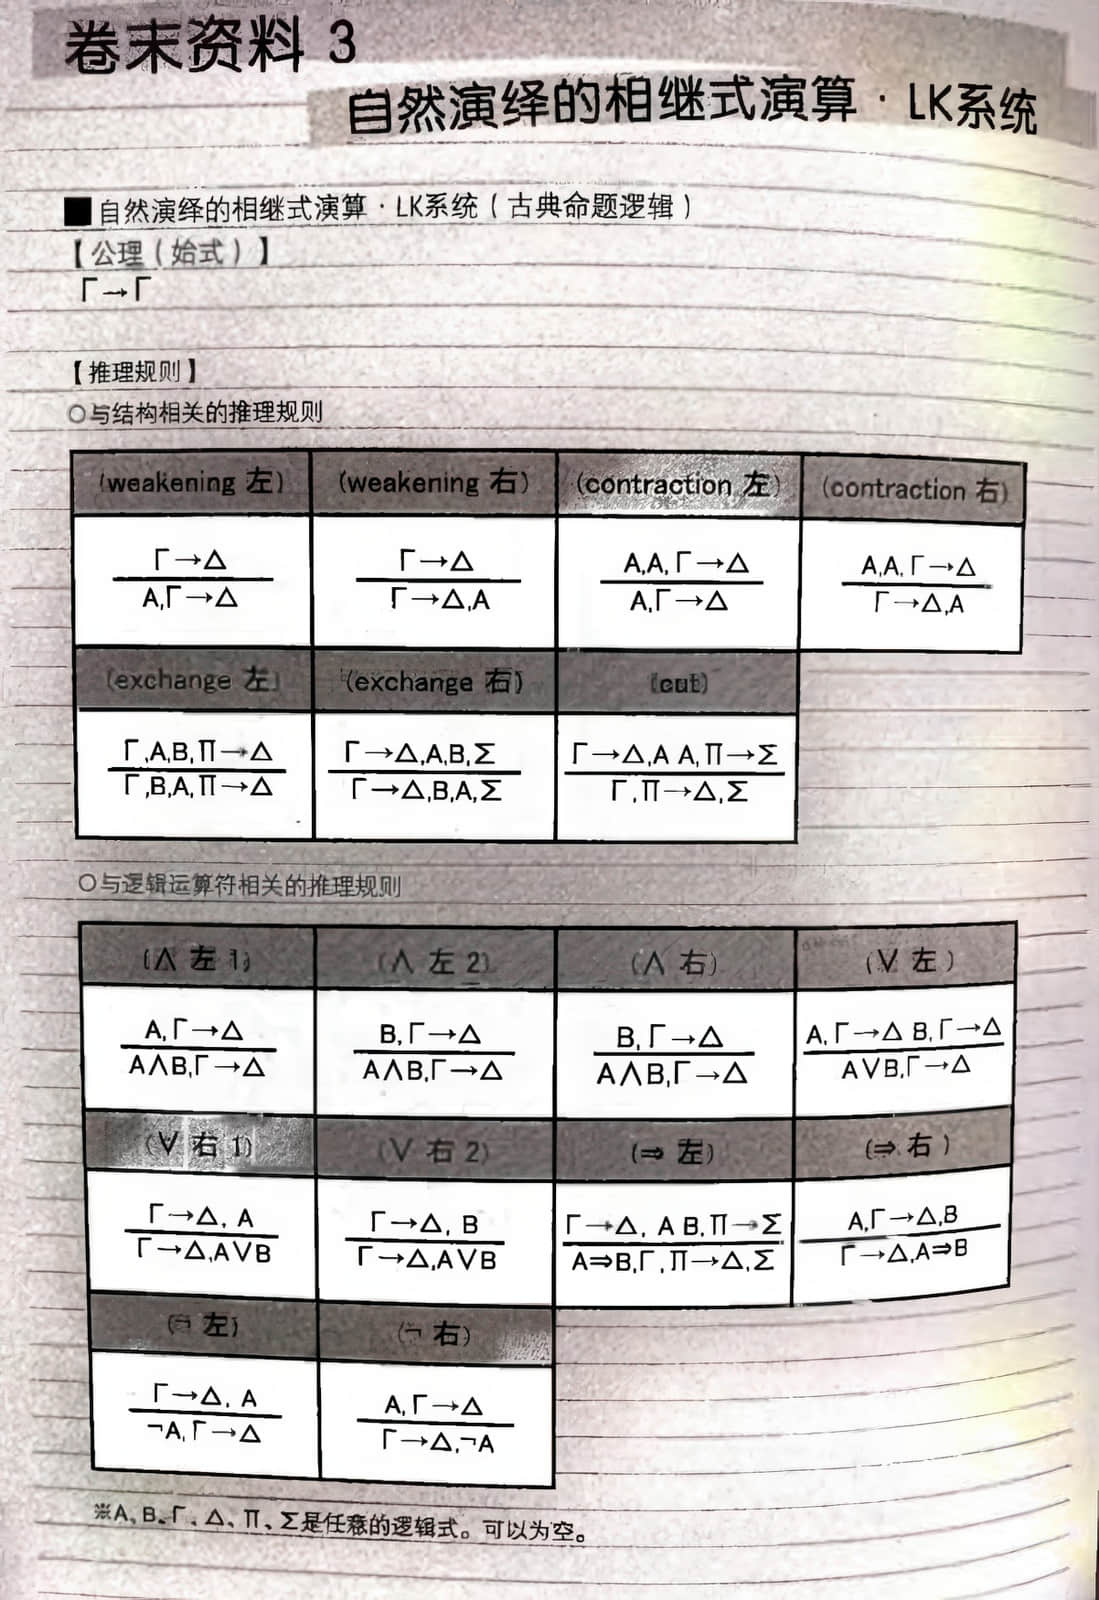 卷末资料 3
自然演绎的相继式演算·LK系统
■自然演绎的相继式演算·LK系统（古典命题逻辑）
【公理（始式）】
Γ→Γ
【推理规则】
○与结构相关的推理规则
(weakening 左) (weakening 右) (contraction 左) (contraction 右)
Γ→△ Γ→△ A,A,Γ→△ A,A,Γ→△
A,Γ→△ Γ→△,A A,Γ→△ Γ→△,A
(exchange 左) (exchange 右) (cut)
Γ,A,B,Π→△ Γ→△,A,B,Σ Γ→△,A A,Π→Σ
Γ,B,A,Π→△ Γ→△,B,A,Σ Γ,Π→△,Σ
○与逻辑运算符相关的推理规则
(∧ 左 1) (∧ 左 2) (∧ 右) (∨ 左)
A,Γ→△ B,Γ→△ B,Γ→△ A,Γ→△ B,Γ→△
A∧B,Γ→△ A∧B,Γ→△ A∧B,Γ→△ A∨B,Γ→△
(∨ 右 1) (∨ 右 2) (⇒ 左) (⇒ 右)
Γ→△, A Γ→△, B Γ→△, A B,Π→Σ A,Γ→△,B
Γ→△,A∨B Γ→△,A∨B A⇒B,Γ,Π→△,Σ Γ→△,A⇒B
(¬ 左) (¬ 右)
Γ→△, A A,Γ→△
¬A,Γ→△ Γ→△,¬A
※A、B、Γ、△、Π、Σ是任意的逻辑式。可以为空。